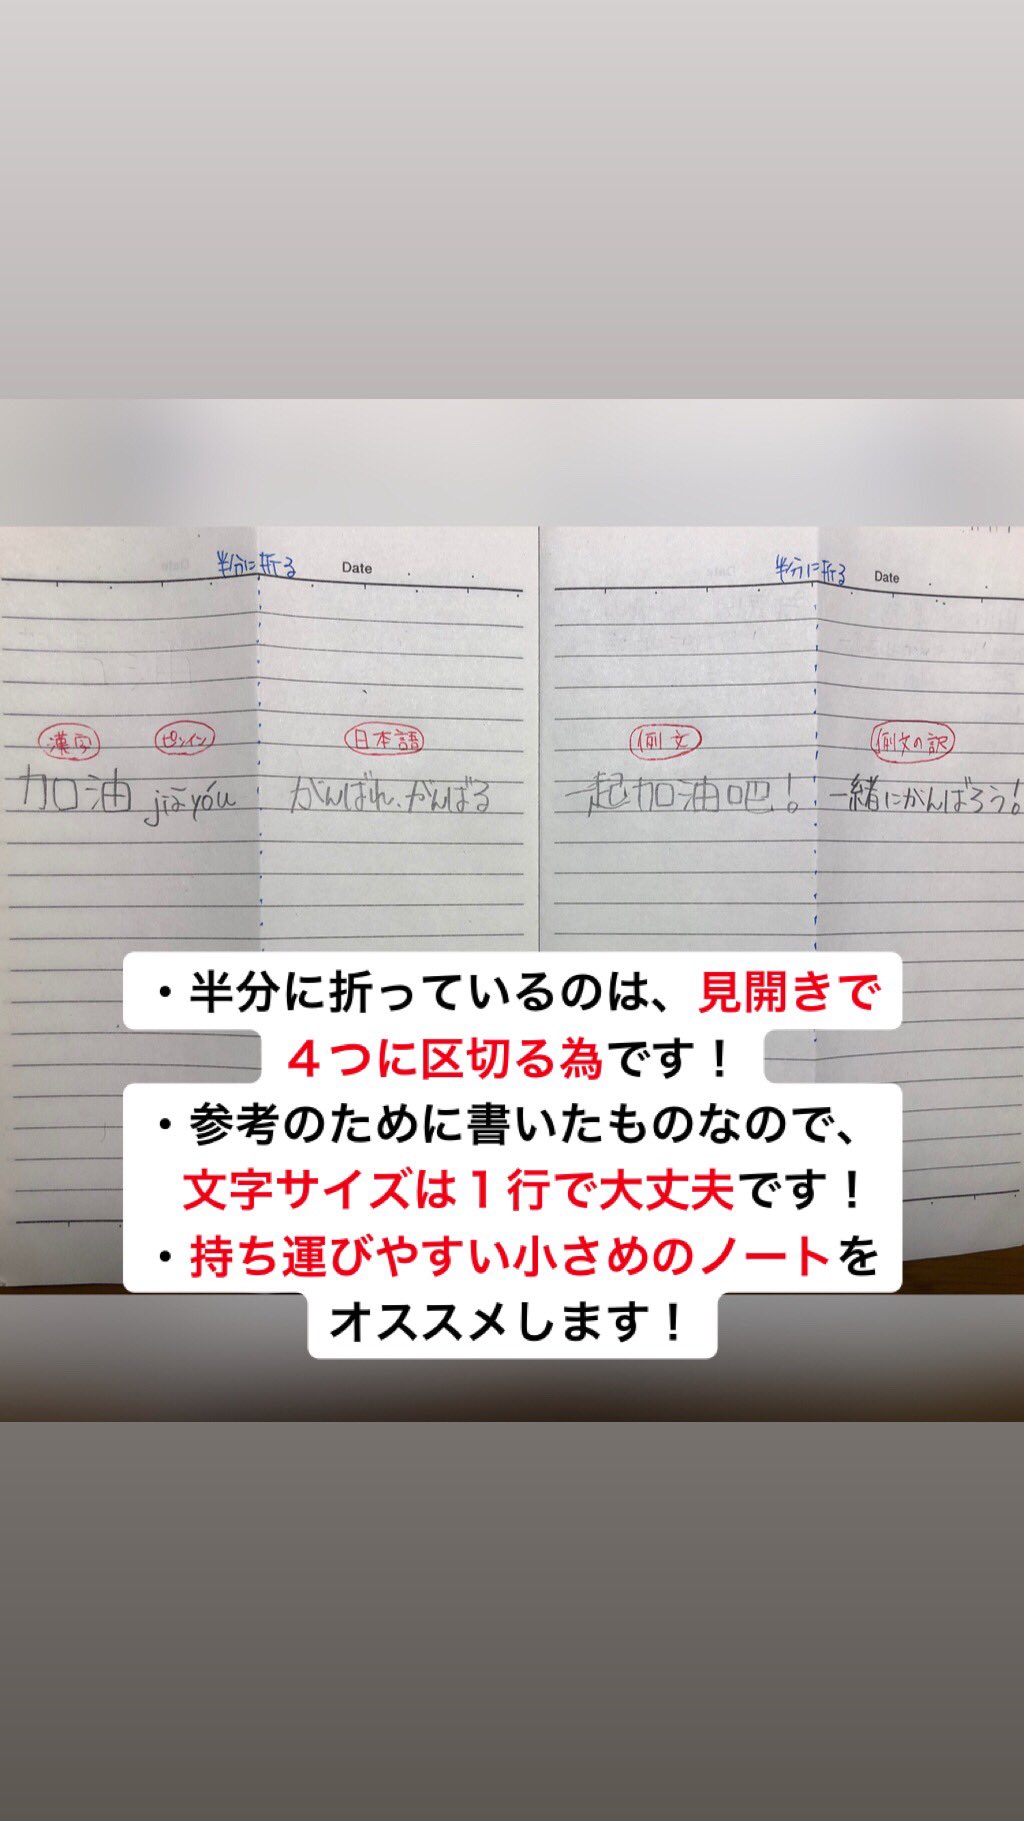 半分に折る Date
半分に折る Date
漢字 ピンイン 日本語 例文 例文の訳
加油 jiā yóu がんばれ、がんばる 一起加油吧! 一緒にがんばろう!
・半分に折っているのは、見開きで
4つに区切る為です!
・参考のために書いたものなので、
文字サイズは1行で大丈夫です!
・持ち運びやすい小さめのノートを
オススメします!